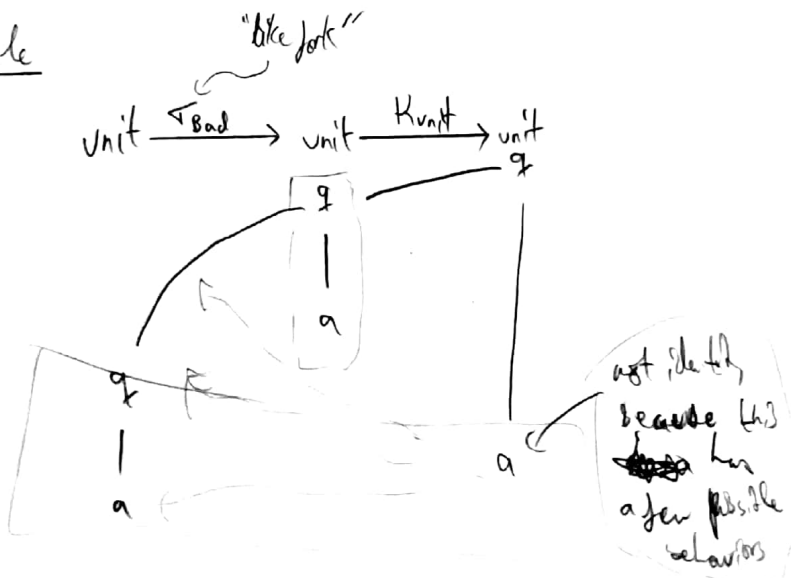 le
"bike fork"
unit σBad unit Kunit unit
q
q
a
q
a
a
not identity
because this
has
a few possible
behaviors